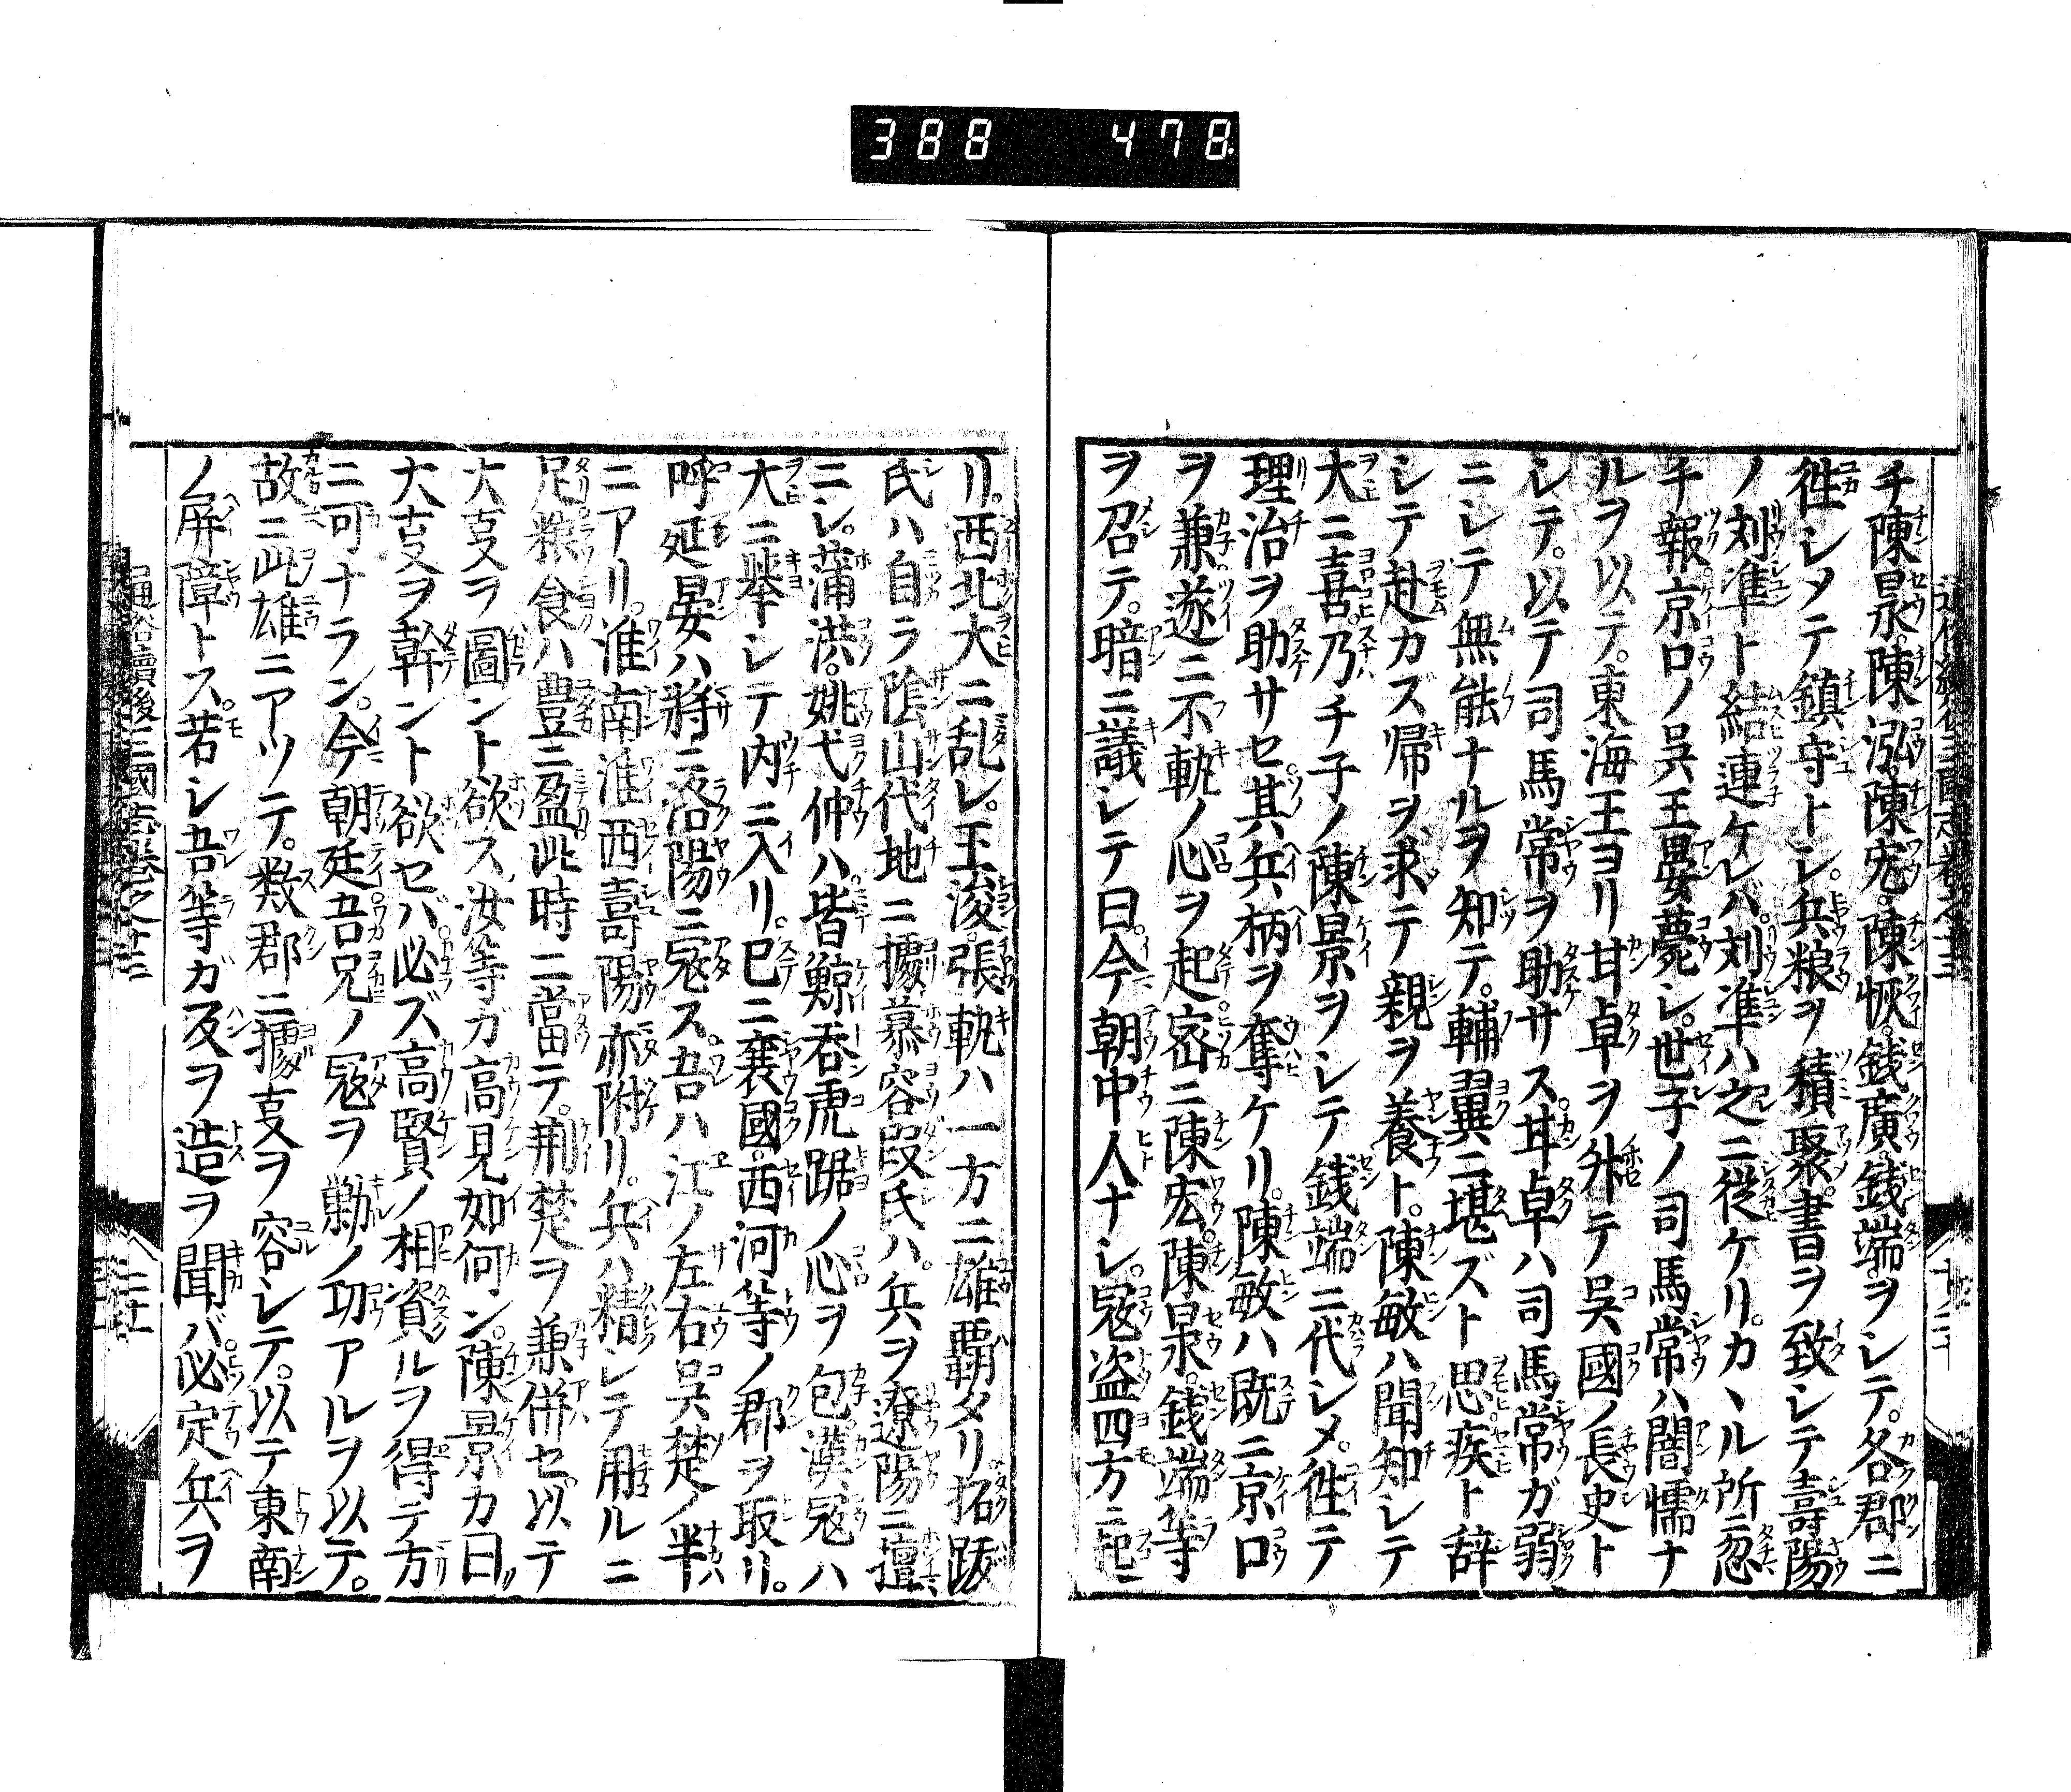 388 478
チ陳昶。陳泓。陳宏。陳恢。銭廣。銭端。ヲシテ。各郡ニ
徃シメテ鎮守トシ。兵粮ヲ積聚。書ヲ致シテ壽陽
ノ刘準ト結連ケレバ。刘準ハ之ニ従ケリ。カヽル所ニ忽
チ報。京口ノ呉王晏薨シ。世子ノ司馬常ハ闇懦ナ
ルヲ以テ。東海王ヨリ甘卓ヲ外テ呉國ノ長史ト
シテ。以テ司馬常ヲ助サス。甘卓ハ司馬常ガ弱
ニシテ無能ナルヲ知テ。輔翼ニ堪ズト思疾ト辞
シテ赴カズ帰ヲ求テ親ヲ養ト。陳敏ハ聞知シテ
大ニ喜。乃チ子ノ陳景ヲシテ銭端ニ代シメ。徃テ
理治ヲ助サセ。其兵柄ヲ奪ケリ。陳敏ハ既ニ京口
ヲ兼。遂ニ不軌ノ心ヲ起。密ニ陳宏。陳昶。銭端等
ヲ召テ。暗ニ議シテ曰。今朝中人ナシ。冦盗四方ニ起
リ。西北大ニ乱レ。王浚。張軌ハ一方ニ雄覇タリ。拓跋
氏ハ自ラ陰山代地ニ據。慕容段氏ハ。兵ヲ遼陽ニ擅
ニシ。蒲洪。姚弋仲ハ皆鯨吞虎踞ノ心ヲ包。漢冦ハ
大ニ舉シテ内ニ入リ。已ニ襄國。西河等ノ郡ヲ取リ。
呼延晏ハ將ニ洛陽ニ冦ス。吾ハ江ノ左右呉楚ノ半
ニアリ。淮南淮西壽陽亦附リ。兵ハ精シテ用ルニ
足粮食ハ豊ニ盈。此時ニ當テ。荊楚ヲ兼併セ。以テ
大叓ヲ圖ント欲ス。汝等ガ高見如何ン。陳景カ曰
大叓ヲ幹ント欲セバ。必ズ高賢ノ相資ルヲ得テ方
ニ可ナラン。今朝廷吾兄ノ冦ヲ勦ノ功アルヲ以テ。
故ニ此雄ニアツテ。数郡ニ據叓ヲ容シテ。以テ東南
ノ屏障トス。若シ吾等ガ反ヲ造ヲ聞バ。必定兵ヲ
通俗續後三國志卷之十三